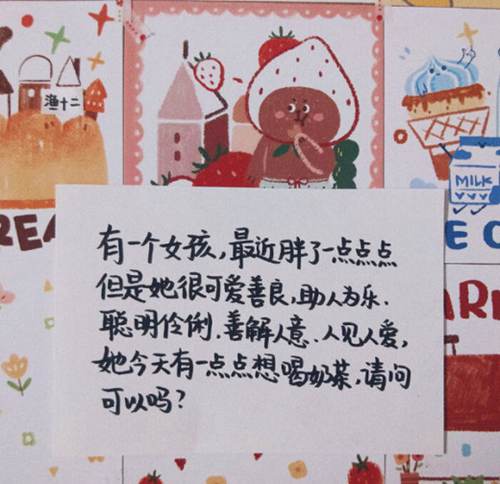 渔十二
MILK
REA
E C
ARE
有一个女孩，最近胖了一点点点
但是她很可爱善良，助人为乐、
聪明伶俐、善解人意、人见人爱，
她今天有一点点想喝奶茶，请问
可以吗？